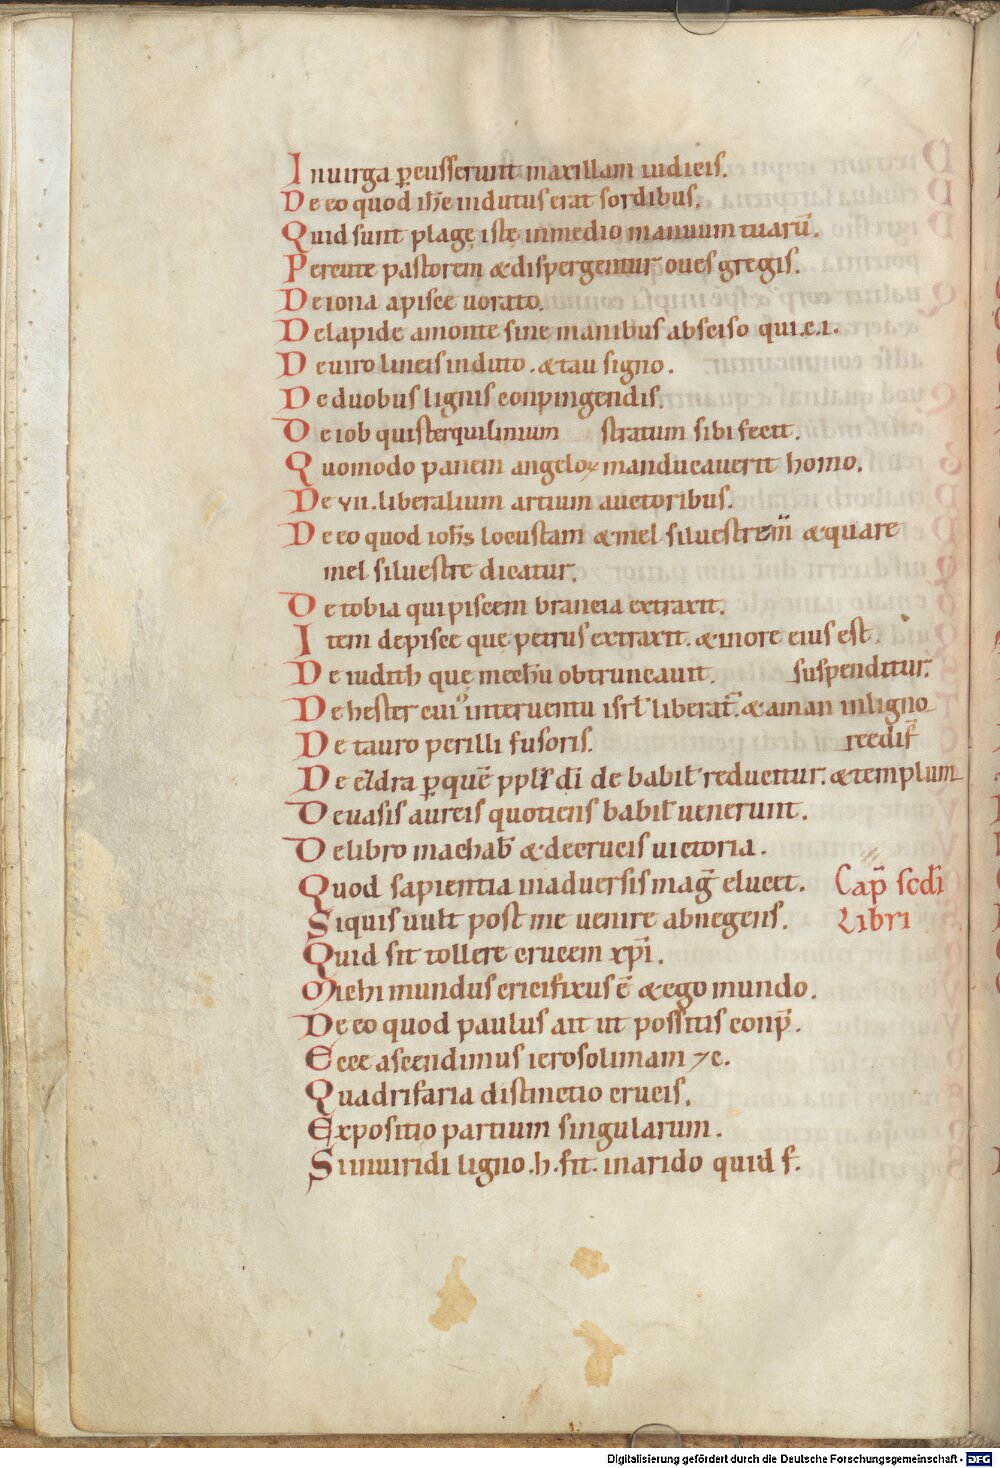 In uirga ꝑcusserunt maxillam iudicis.
De eo quod ih̅c indutus erat sordibus.
Quid sunt plagę istę in medio manuum tuaru̅.
Percute pastorem & dispergentur oues gregis.
De iona a pisce uorato.
De lapide a monte sine manibus absciso qui.e.i.
De uiro lineis induto . & tau signo.
De duobus lignis conpingendis.
De iob qui sterquilinium stratum sibi fecit.
Quomodo panem angeloꝝ manducauerit homo.
De vii. liberalium artium auctoribus.
De eo quod ioh̅s locustam & mel siluestre & quare
mel siluestre dicatur.
De tobia qui piscem brancia extraxit.
Item de pisce que petrus extraxit. & in ore eius est.
De iudith quę mech̅u obtruncauit. suspenditur.
De hester cui᷒ interuentu isrl̅ liberat̅. & aman in ligno
De tauro perilli fusoris. reedif̅
De esdra ꝑ que̅ ppl̅s di̅ de babil̅ reducitur. & templum
De uasis aureis quotiens babil̅ uenerunt.
De libro machab̅ & de crucis uictoria.
Quod sapientia in aduersis mag̅ elucet. Cap̅ scd̅i
Siquis uult post me uenire abnegens. Libri
Quid sit tollere crucem xp̅i.
Michi mundus cricifixus e̅ & ego mundo.
De eo quod paulus ait ut possitis conp̅.
Ecce ascendimus ierosolimam ⁊c.
Quadrifaria distinctio crucis.
Expositio partium singularum.
Si in uiridi ligno .h. fit. in arido quid f.
Digitalisierung gefördert durch die Deutsche Forschungsgemeinschaft - DFG